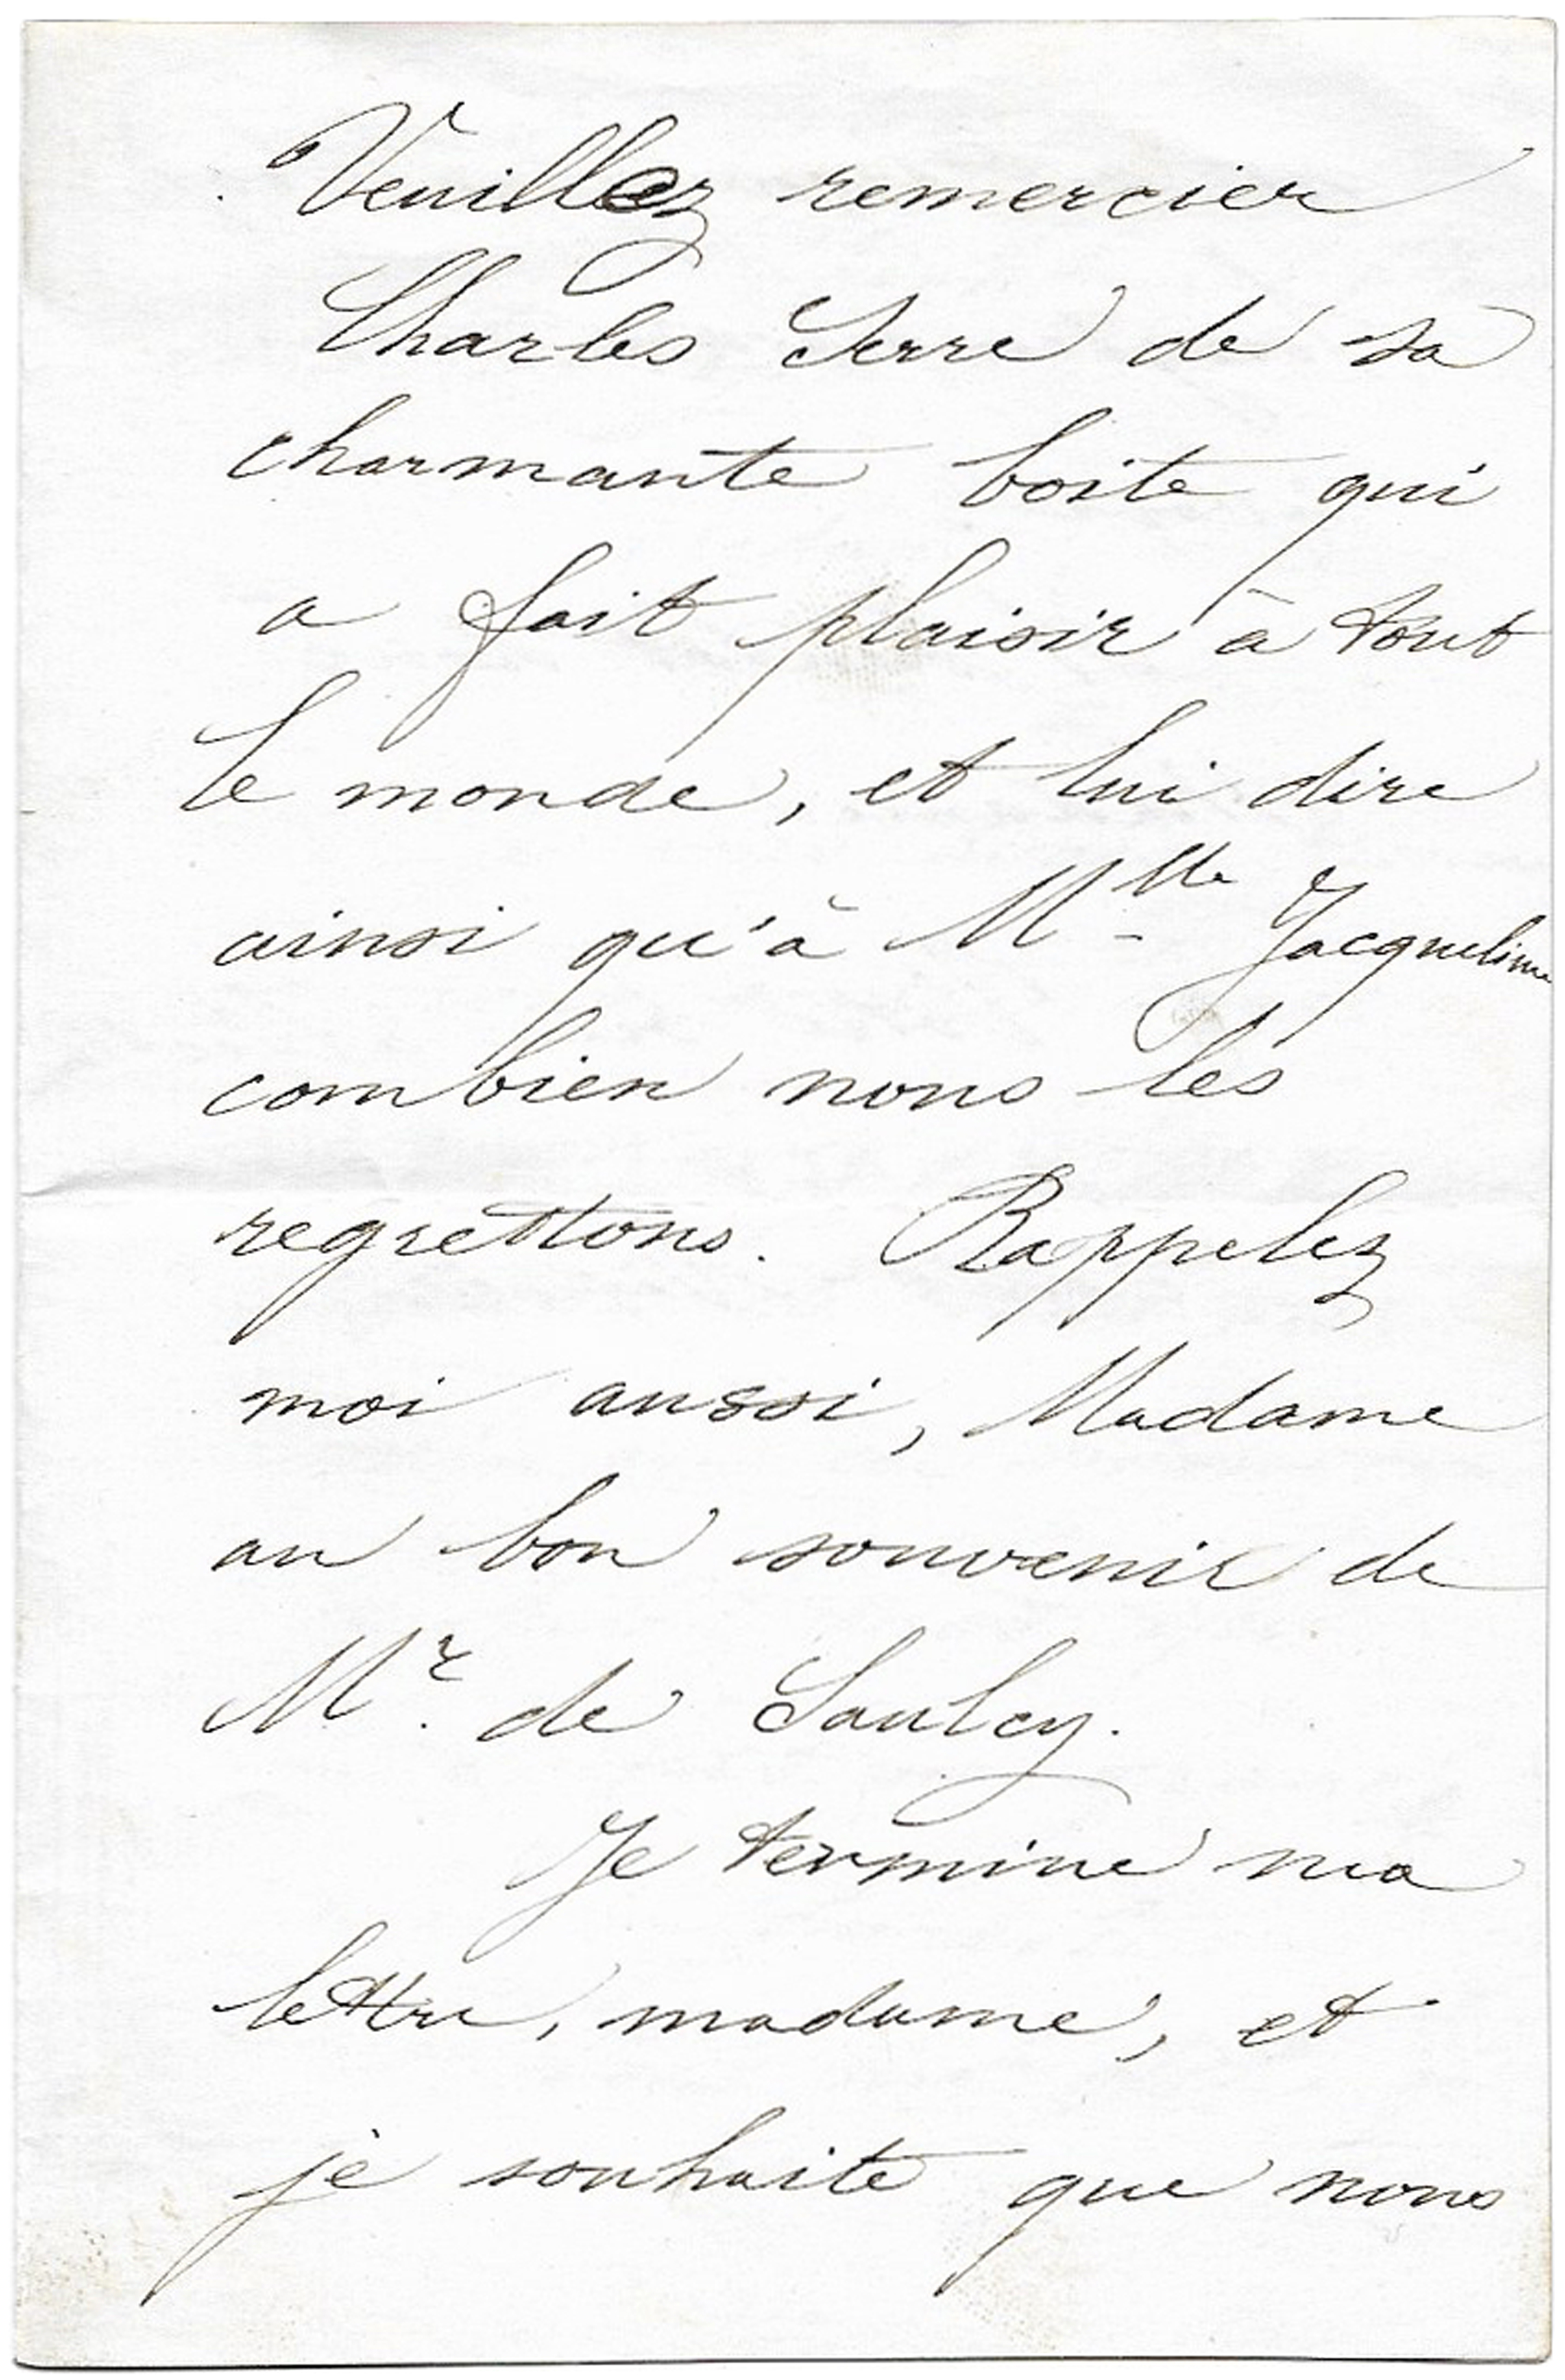 Veuillez remercier
Charles Serre de sa
charmante boite qui
a fait plaisir à tout
le monde, et lui dire
ainsi qu'à Mlle Jacqueline
combien nous les
regrettons. Rappelez
moi aussi, Madame
au bon souvenir de
Mr. de Saulcy.
Je termine ma
lettre, madame, et
je souhaite que nous